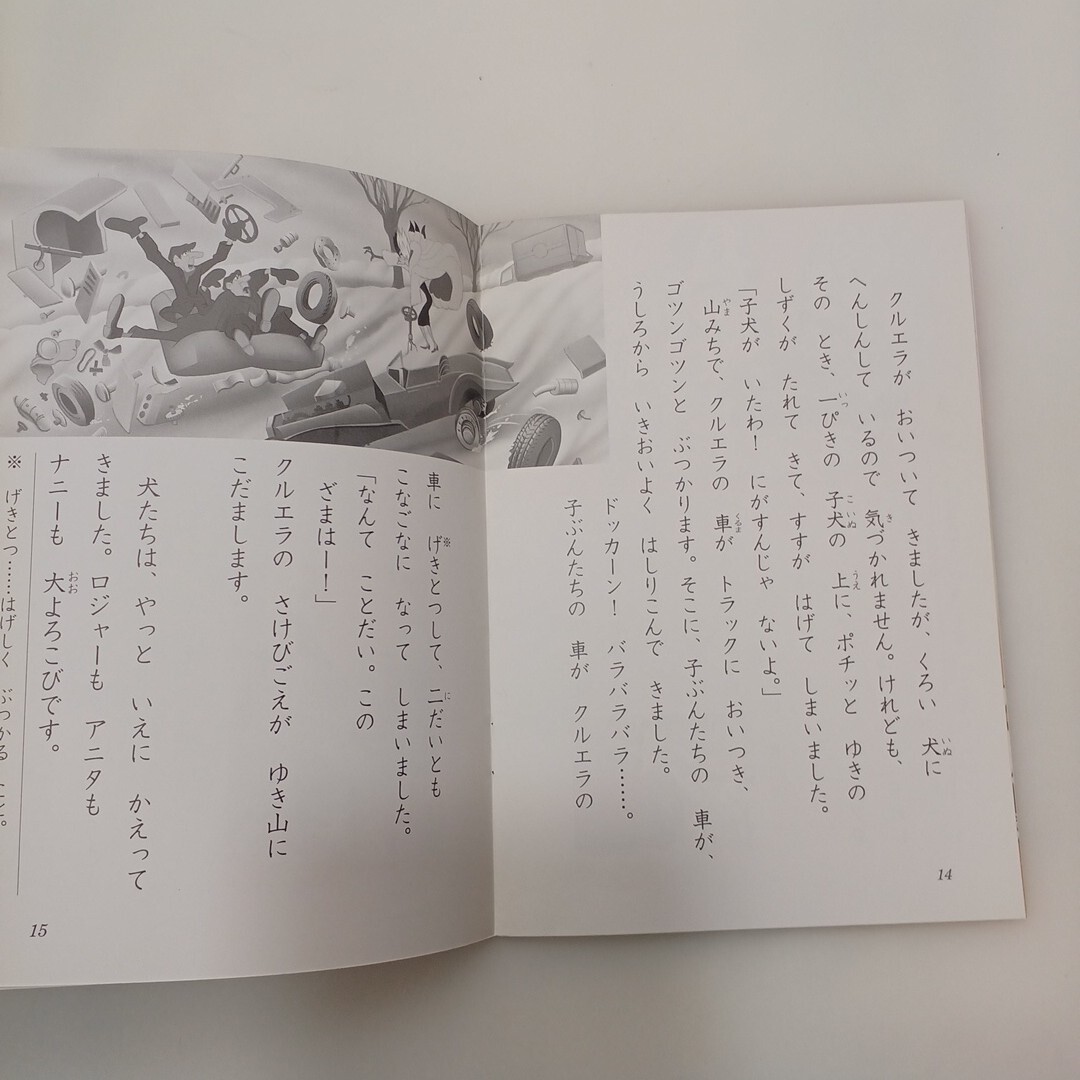 クルエラが おいついて きましたが、くろい 犬に
へんしんして いるので 気づかれません。けれども、
その とき、一ぴきの 子犬の 上に、ポチッと ゆきの
しずくが たれて きて、すすが はげて しまいました。
「子犬が いたわ! にがすんじゃ ないよ。」
山みちで、クルエラの 車が トラックに おいつき、
ゴツンゴツンと ぶつかります。そこに、子ぶんたちの 車が、
うしろから いきおいよく はしりこんで きました。
ドッカーン! バラバラバラ……。
子ぶんたちの 車が クルエラの
14
車に げきとつ※して、二だいとも
こなごなに なって しまいました。
「なんて ことだい。この
ざまはー!」
クルエラの さけびごえが ゆき山に
こだまします。
犬たちは、やっと いえに かえって
きました。ロジャーも アニタも
ナニーも 大よろこびです。
※ げきとつ……はげしく ぶつかる こと。
15